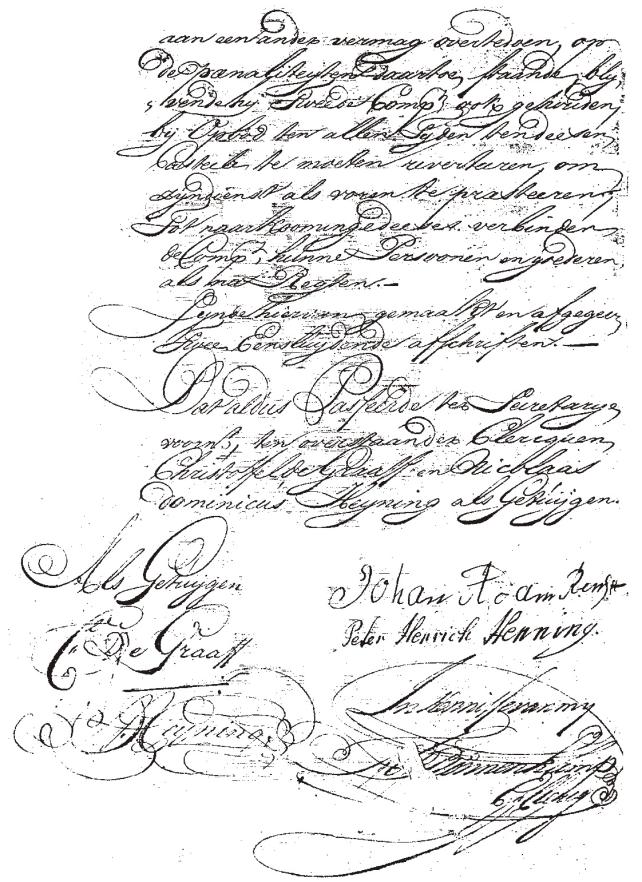 aan een ander vermag overtedoen, op
de Panaliteyten daartoe staande, bly„
„vende hij Tweede Comp.t ook gehouden,
bij Opbod ten allen Tyden tendeesen
Casteele te moeten reverteeren, om
zyn dienst als voren te prasteeren,
Tot naarkooming deeses verbinden
de Comp.ten hunne Persoonen en goederen
als na Regten.—
Zynde hiervan gemaakt en afgegeven
Twee Eensluydende affschriften.—
Dat aldus Passeerde ter Secretarye
voorn.t, ten overstaan der Clercquen
Christoffel de Graaff en Nicolaas
dominicus Heyning als Getuygen.
Als Getuygen
Johan Adam
C:s De Graaff
Peter Henrich Henning.
Heyning
In kennisse van my